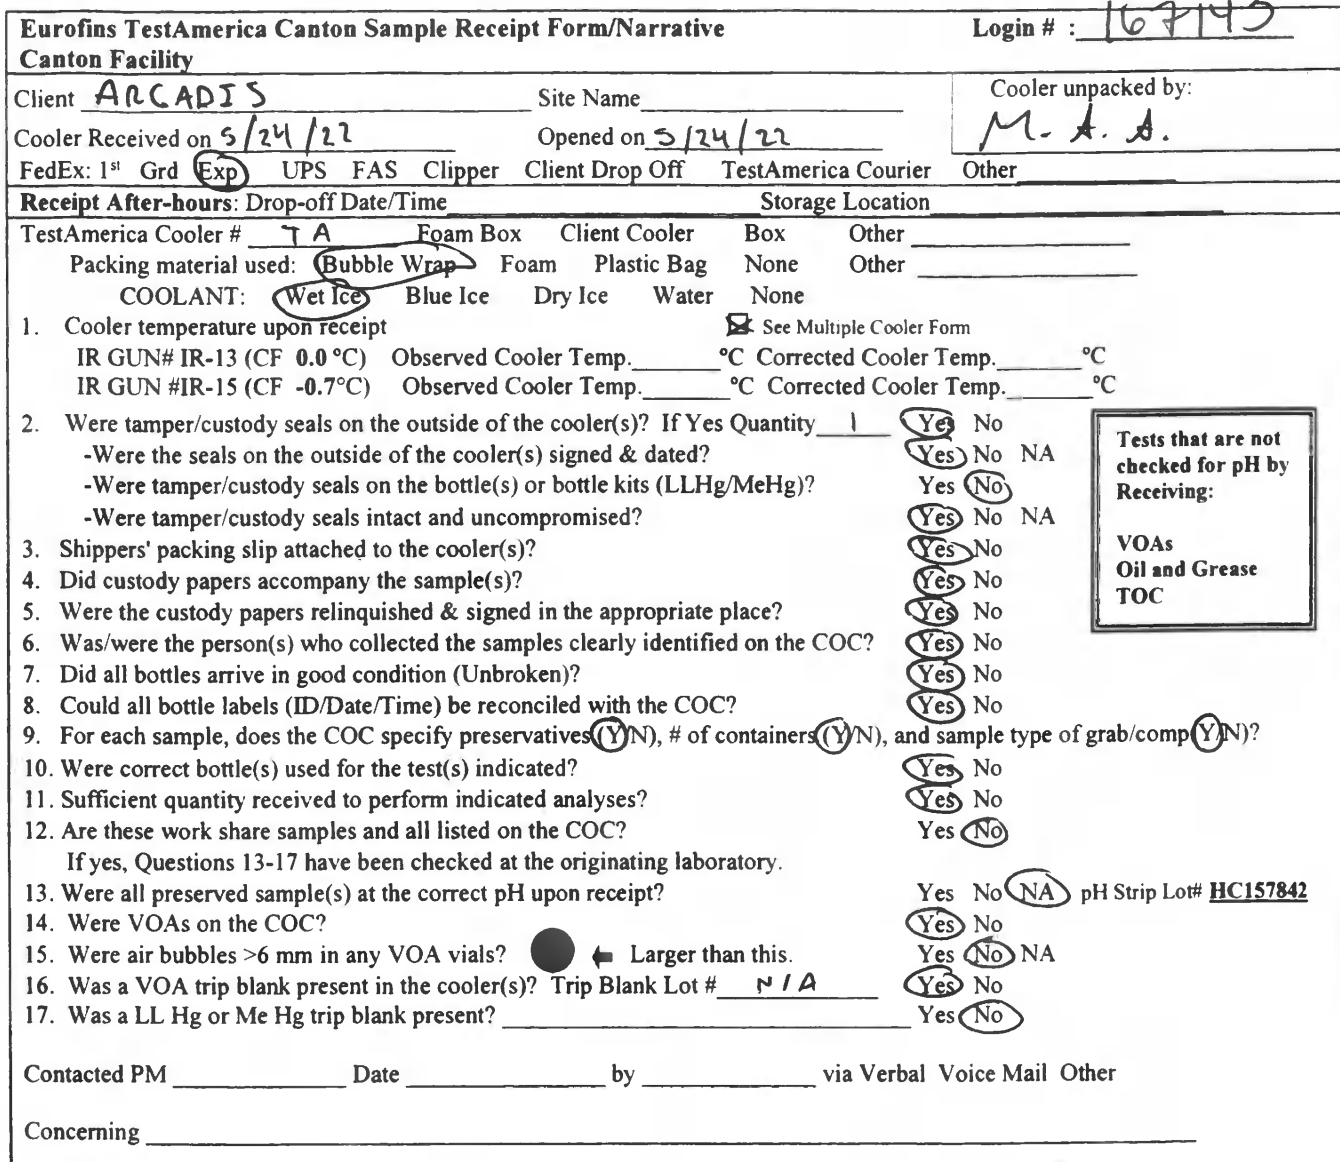 Eurofins TestAmerica Canton Sample Receipt Form/Narrative Login # : 167145
Canton Facility
Client ARCADIS Site Name Cooler unpacked by:
Cooler Received on 5/24/22 Opened on 5/24/22 M. A. A.
FedEx: 1st Grd Exp UPS FAS Clipper Client Drop Off TestAmerica Courier Other
Receipt After-hours: Drop-off Date/Time Storage Location
TestAmerica Cooler # TA Foam Box Client Cooler Box Other
Packing material used: Bubble Wrap Foam Plastic Bag None Other
COOLANT: Wet Ice Blue Ice Dry Ice Water None
1. Cooler temperature upon receipt See Multiple Cooler Form
IR GUN# IR-13 (CF 0.0 °C) Observed Cooler Temp. °C Corrected Cooler Temp. °C
IR GUN #IR-15 (CF -0.7°C) Observed Cooler Temp. °C Corrected Cooler Temp. °C
2. Were tamper/custody seals on the outside of the cooler(s)? If Yes Quantity 1 Yes No
-Were the seals on the outside of the cooler(s) signed & dated? Yes No NA
-Were tamper/custody seals on the bottle(s) or bottle kits (LLHg/MeHg)? Yes No
-Were tamper/custody seals intact and uncompromised? Yes No NA
3. Shippers' packing slip attached to the cooler(s)? Yes No
4. Did custody papers accompany the sample(s)? Yes No
5. Were the custody papers relinquished & signed in the appropriate place? Yes No
6. Was/were the person(s) who collected the samples clearly identified on the COC? Yes No
7. Did all bottles arrive in good condition (Unbroken)? Yes No
8. Could all bottle labels (ID/Date/Time) be reconciled with the COC? Yes No
Tests that are not
checked for pH by
Receiving:
VOAs
Oil and Grease
TOC
9. For each sample, does the COC specify preservatives (Y/N), # of containers (Y/N), and sample type of grab/comp(Y/N)?
10. Were correct bottle(s) used for the test(s) indicated? Yes No
11. Sufficient quantity received to perform indicated analyses? Yes No
12. Are these work share samples and all listed on the COC? Yes No
If yes, Questions 13-17 have been checked at the originating laboratory.
13. Were all preserved sample(s) at the correct pH upon receipt? Yes No NA pH Strip Lot# HC157842
14. Were VOAs on the COC? Yes No
15. Were air bubbles >6 mm in any VOA vials? Larger than this. Yes No NA
16. Was a VOA trip blank present in the cooler(s)? Trip Blank Lot # N/A Yes No
17. Was a LL Hg or Me Hg trip blank present? Yes No
Contacted PM Date by via Verbal Voice Mail Other
Concerning